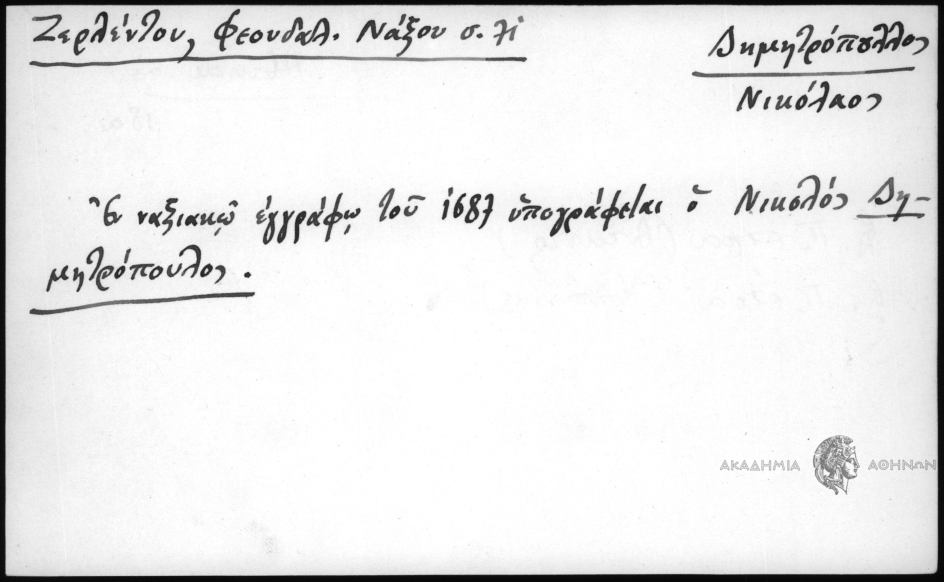 Ζερλέντου, Φεουδαλ. Νάξου σ.
Δημητρόπουλλος
Νικόλαος
Ἐν ναξιακῷ ἐγγράφῳ τοῦ 1687 ὑπογράφεται ὁ Νικολός Δη-
μητρόπουλος.
ΑΚΑΔΗΜΙΑ ΑΘΗΝΩΝ